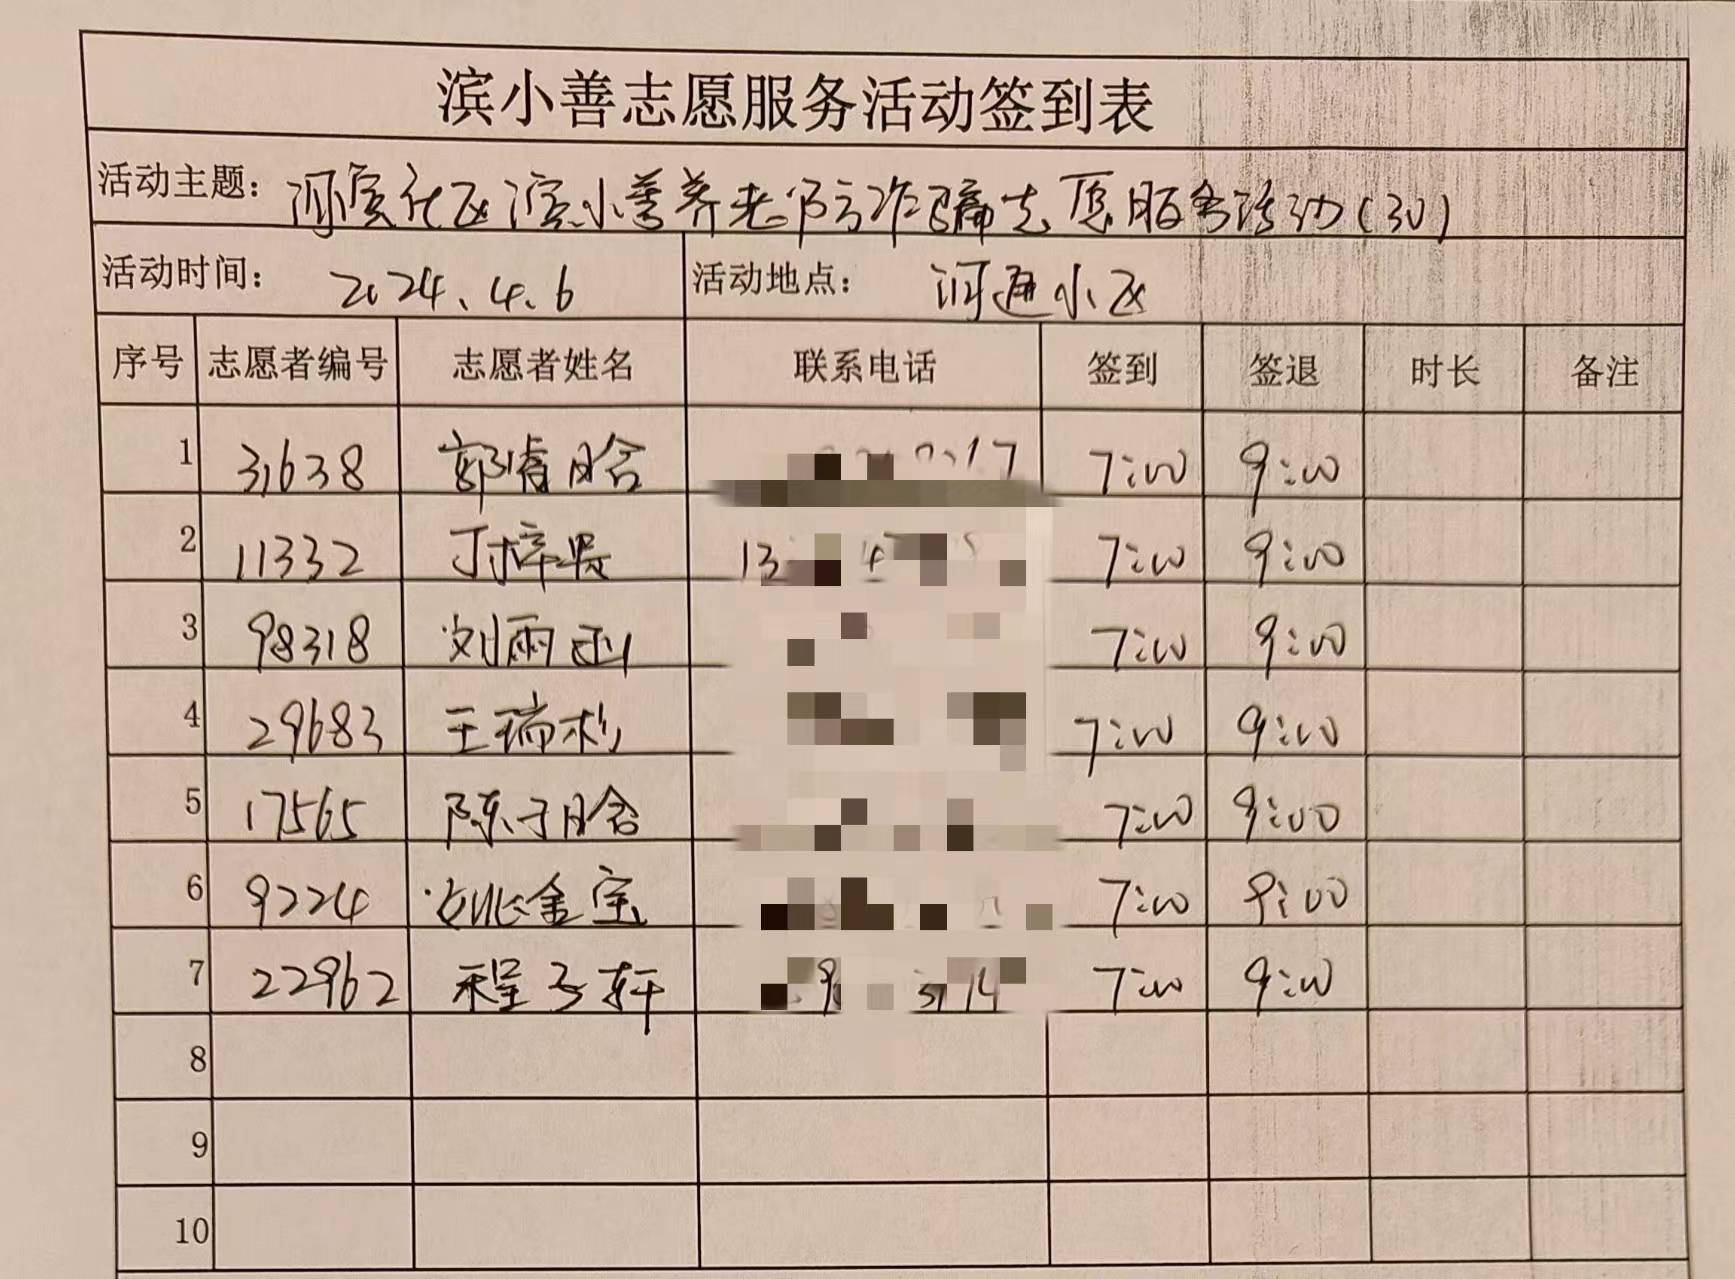 滨小善志愿服务活动签到表
活动主题：河滨社区滨小善养老防诈骗志愿服务活动(30)
活动时间：2024.4.6 活动地点：河通小区
序号 志愿者编号 志愿者姓名 联系电话 签到 签退 时长 备注
1 31638 郭睿晗 7:00 9:00
2 11332 丁梓 7:00 9:00
3 98318 刘雨 7:00 9:00
4 29683 王瑞杉 7:00 9:00
5 17565 陈子晗 7:00 9:00
6 9224 姚金宝 7:00 9:00
7 22962 程子轩 7:00 9:00
8
9
10